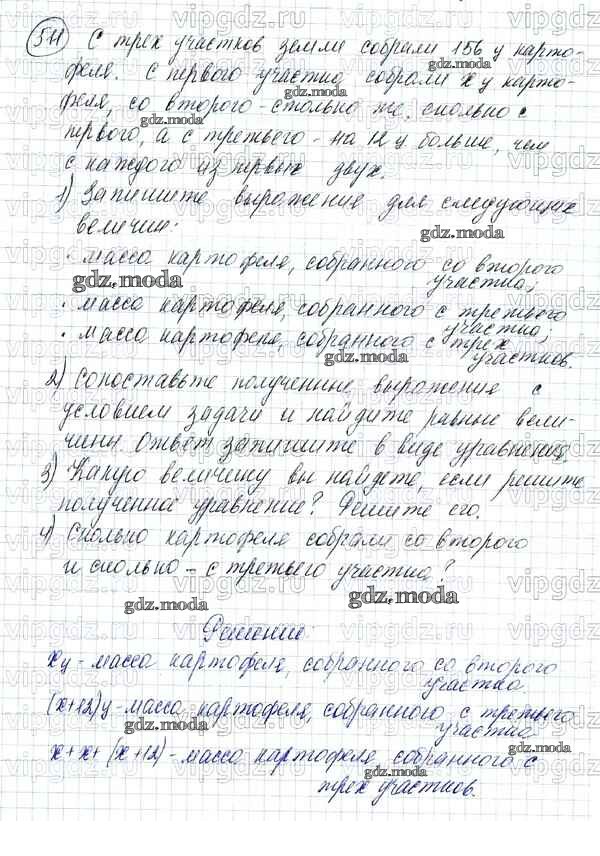 511 С трех участков земли собрали 156 ц карто-
феля. С первого участка собрали x ц карто-
феля, со второго - столько же, сколько с
первого, а с третьего - на 12 ц больше, чем
с каждого из первых двух.
1) Запишите выражения для следующих
величин:
· масса картофеля, собранного со второго
участка;
· масса картофеля, собранного с третьего
участка;
· масса картофеля, собранного с трех
участков.
2) Сопоставьте полученные выражения с
условием задачи и найдите равные вели-
чины. Ответ запишите в виде уравнения.
3) Какую величину вы найдете, если решите
полученное уравнение? Решите его.
4) Сколько картофеля собрали со второго
и сколько - с третьего участка?
gdz.moda
Решение:
xц - масса картофеля, собранного со второго
участка
(x+12)ц - масса картофеля, собранного с третьего
участка
x+x+(x+12) - масса картофеля, собранного с
трех участков.
vipgdz.ru